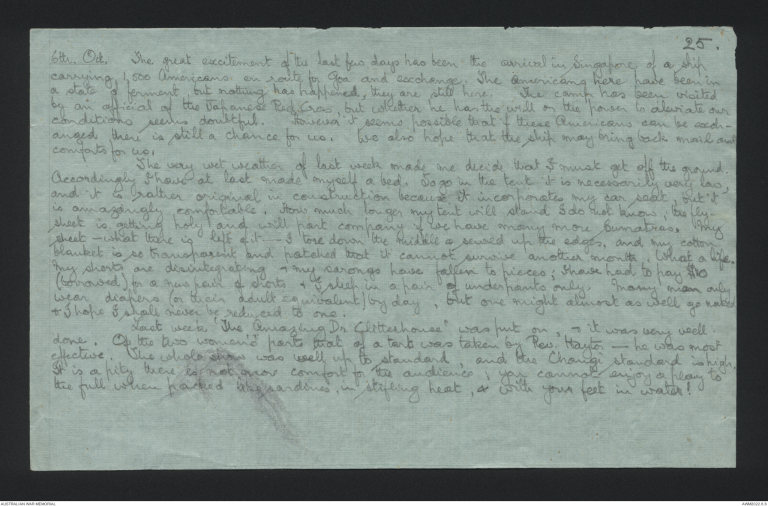 25.
6th. Oct. The great excitement of the last few days has been the arrival in Singapore of a ship
carrying 1,500 Americans en route for Goa and exchange. The Americans here have been in
a state of ferment, but nothing has happened, they are still here. The camp has been visited
by an official of the Japanese Red Cross, but whether he has the will or the power to aleviate our
conditions seems doubtful. However it seems possible that if these Americans can be exch-
anged there is still a chance for us. We also hope that the ship may bring back mail and
comforts for us.
The very wet weather of last week made me decide that I must get off the ground.
Accordingly I have at last made myself a bed. To go in the tent it is necessarily very low,
and it is rather original in construction because it incorporates my car seat, but it
is amazingly comfortable. How much longer my tent will stand I do not know; the fly-
sheet is getting holy and will part company if we have many more Sumatras. My
sheet - what there is left of it - I tore down the middle & sewed up the edges, and my cotton
blanket is so transparent and patched that it cannot survive another month. What a life.
My shorts are disintegrating & my sarongs have fallen to pieces; I have had to pay $10
(borrowed) for a new pair of shorts & I sleep in a pair of underpants only. Many men only
wear diapers (or their adult equivalent) by day, but one might almost as well go naked
& I hope I shall never be reduced to one.
Last week "The Amazing Dr Clitterhouse" was put on, & it was very well
done. Of the two women's parts that of a tart was taken by Rev. Hayter - he was most
effective. The whole show was well up to standard, and the Changi standard is high.
It is a pity there is not more comfort for the audience; you cannot enjoy a play to
the full when packed like sardines, in stifling heat, & with your feet in water!
AUSTRALIAN WAR MEMORIAL